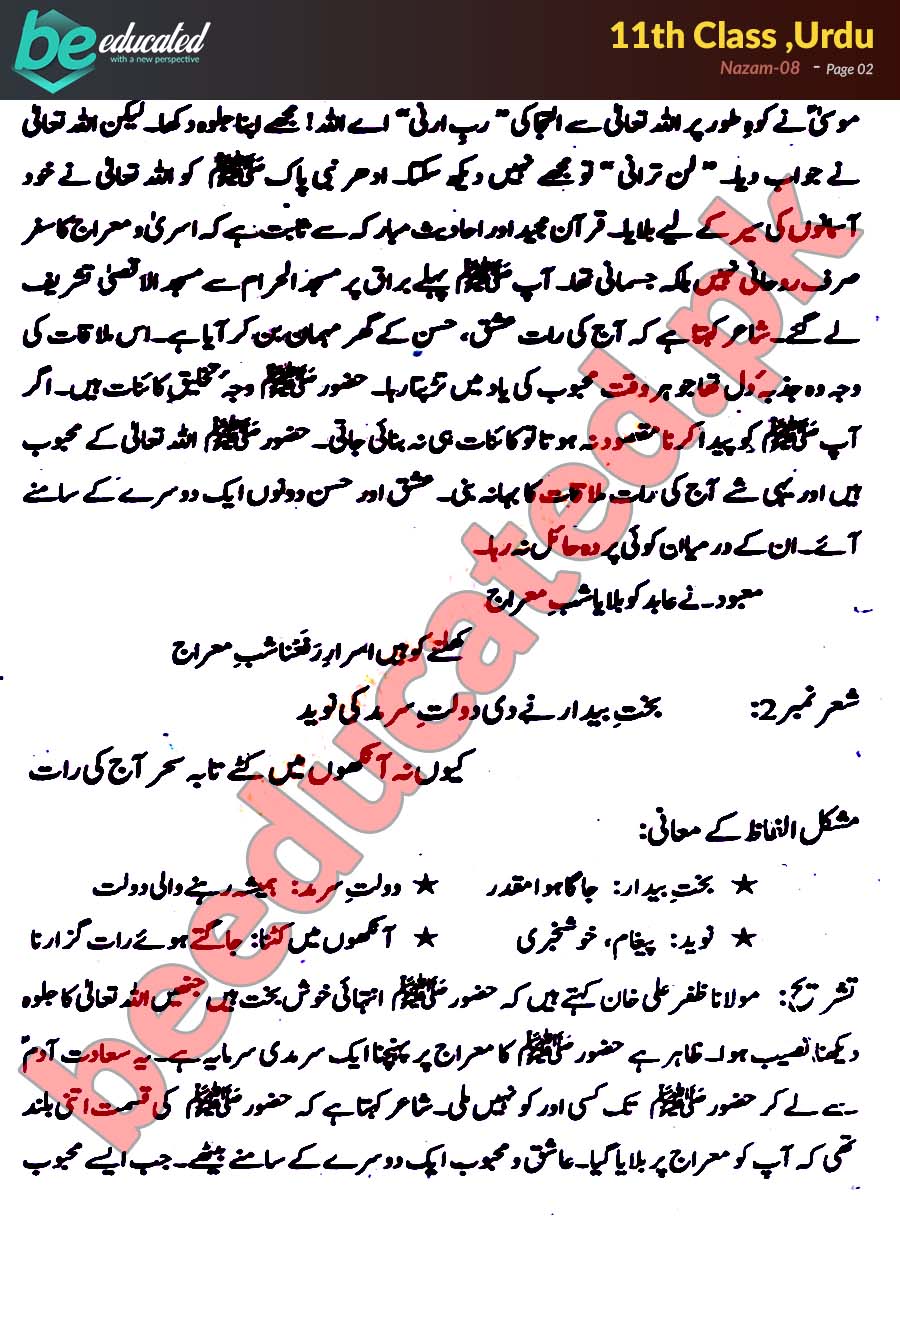 be educated
with a new perspective
11th Class ,Urdu
Nazam-08 - Page 02
موسیٰؑ نے کوہِ طور پر اللہ تعالیٰ سے التجا کی "ربِ ارنی" اے اللہ! مجھے اپنا جلوہ دکھا۔ لیکن اللہ تعالیٰ
نے جواب دیا۔ "لن ترانی" تو مجھے نہیں دیکھ سکتا۔ ادھر نبی پاک ﷺ کو اللہ تعالیٰ نے خود
آسمانوں کی سیر کے لیے بلایا۔ قرآن مجید اور احادیث مبارکہ سے ثابت ہے کہ اسریٰ و معراج کا سفر
صرف روحانی نہیں بلکہ جسمانی تھا۔ آپ ﷺ پہلے براق پر مسجد الحرام سے مسجد الاقصیٰ تشریف
لے گئے۔ شاعر کہتا ہے کہ آج کی رات عشق، حسن کے گھر مہمان بن کر آیا ہے۔ اس ملاقات کی
وجہ وہ جذبۂ دل تھا جو ہر وقت محبوب کی یاد میں تڑپتا رہا۔ حضور ﷺ وجۂ تخلیقِ کائنات ہیں۔ اگر
آپ ﷺ کو پیدا کرنا مقصود نہ ہوتا تو کائنات ہی نہ بنائی جاتی۔ حضور ﷺ اللہ تعالیٰ کے محبوب
ہیں اور یہی شے آج کی رات ملاقات کا بہانہ بنی۔ عشق اور حسن دونوں ایک دوسرے کے سامنے
آئے۔ ان کے درمیان کوئی پردہ حائل نہ رہا۔
معبود نے عابد کو بلایا شبِ معراج
کھلنے کو ہیں اسرارِ رَفَعْنا شبِ معراج
شعر نمبر 2: بختِ بیدار نے دی دولتِ سرمد کی نوید
کیوں نہ آنکھوں میں کٹے تا بہ سحر آج کی رات
مشکل الفاظ کے معانی:
★ بختِ بیدار: جاگا ہوا مقدر ★ دولتِ سرمد: ہمیشہ رہنے والی دولت
★ نوید: پیغام، خوشخبری ★ آنکھوں میں کٹنا: جاگتے ہوئے رات گزارنا
تشریح: مولانا ظفر علی خان کہتے ہیں کہ حضور ﷺ انتہائی خوش بخت ہیں جنھیں اللہ تعالیٰ کا جلوہ
دیکھنا نصیب ہوا۔ ظاہر ہے حضور ﷺ کا معراج پر پہنچنا ایک سرمدی سرمایہ ہے۔ یہ سعادت آدمؑ
سے لے کر حضور ﷺ تک کسی اور کو نہیں ملی۔ شاعر کہتا ہے کہ حضور ﷺ کی قسمت اتنی بلند
تھی کہ آپ کو معراج پر بلایا گیا۔ عاشق و محبوب ایک دوسرے کے سامنے بیٹھے۔ جب ایسے محبوب
beeducated.pk